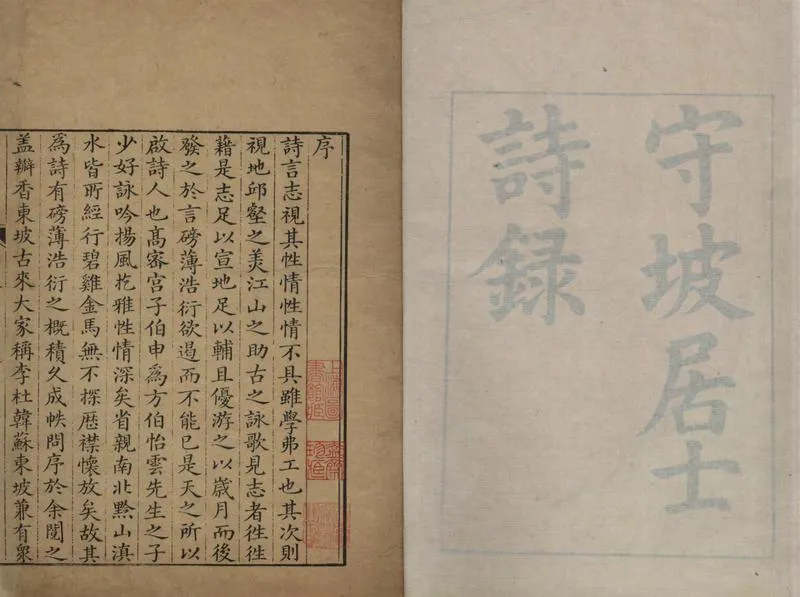 守坡居士
詩録
序
詩言志視其性情性情不具雖學弗工也其次則
視地邱壑之美江山之助古之詠歌見志者徃徃
藉是志足以宣地足以輔且優游之以歲月而後
發之於言磅薄浩衍欲遏而不能已是天之所以
啟詩人也髙密宫子伯申為方伯怡雲先生之子
少好詠吟揚風扢雅性情深矣省親南北黔山滇
水皆所經行碧雞金馬無不探歴襟懷放矣故其
為詩有磅薄浩衍之概積久成帙問序於余閱之
盖瓣香東坡古來大家稱李杜韓蘇東坡兼有衆